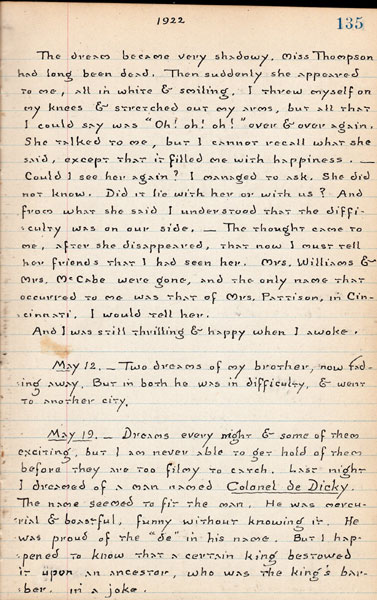 1922
135
The dream became very shadowy. Miss Thompson
had long been dead. Then suddenly she appeared
to me, all in white & smiling. I threw myself on
my knees & stretched out my arms, but all that
I could say was "Oh! oh! oh!" over & over again.
She talked to me, but I cannot recall what she
said, except that it filled me with happiness. —
Could I see her again? I managed to ask. She did
not know. Did it lie with her or with us? And
from what she said I understood that the diffi-
culty was on our side. — The thought came to
me, after she disappeared, that now I must tell
her friends that I had seen her. Mrs. Williams &
Mrs. McCabe were gone, and the only name that
occurred to me was that of Mrs. Pattison, in Cin-
cinnati. I would tell her.
And I was still thrilling & happy when I awoke.
May 12. — Two dreams of my brother, now fad-
ing away. But in both he was in difficulty, & went
to another city.
May 19. — Dreams every night & some of them
exciting, but I am never able to get hold of them
before they are too filmy to catch. Last night
I dreamed of a man named Colonel de Dicky.
The name seemed to fit the man. He was mercu-
rial & boastful, funny without knowing it. He
was proud of the "de" in his name. But I hap-
pened to know that a certain king bestowed
it upon an ancestor, who was the king's bar-
ber, in a joke.